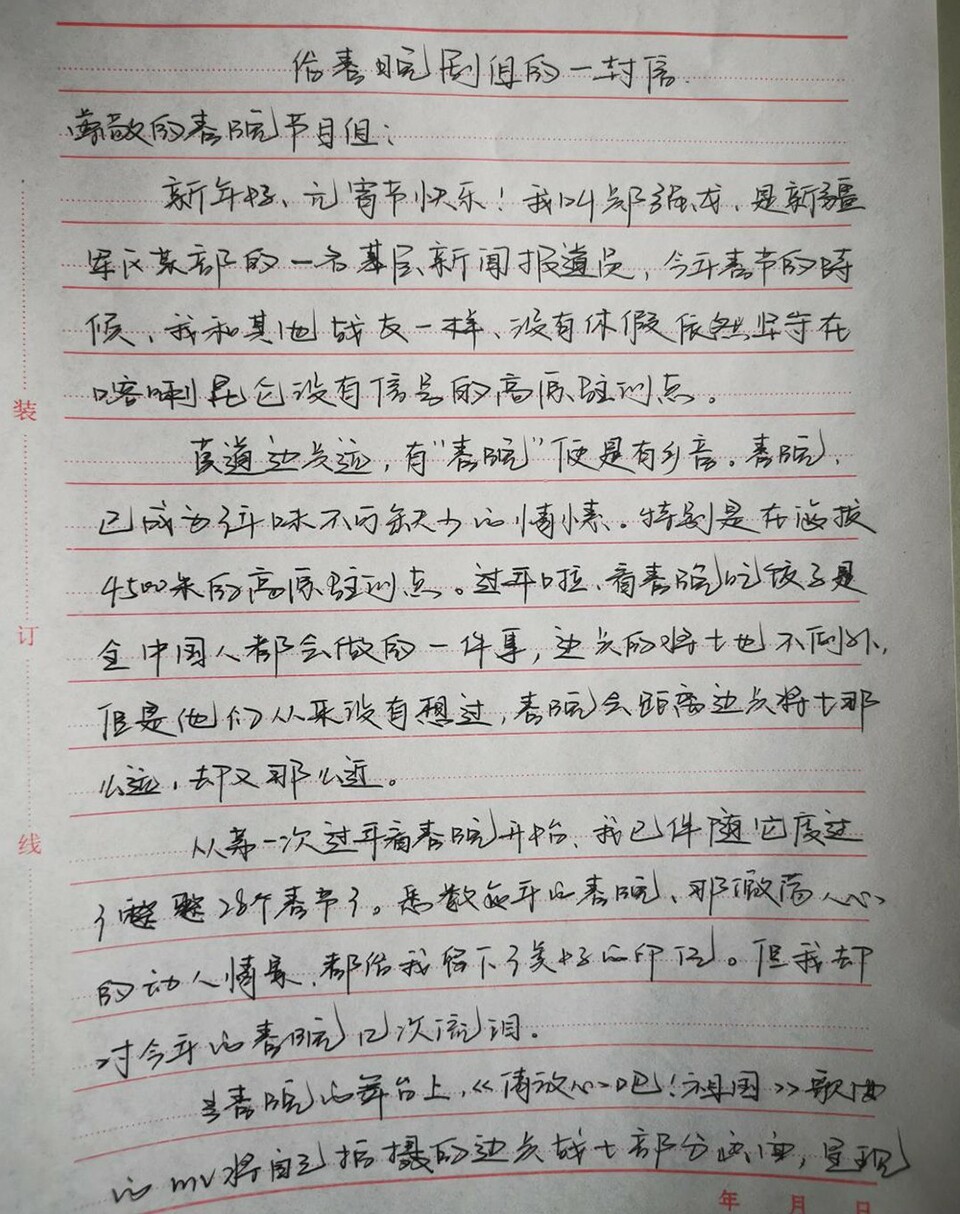 给春晚剧组的一封信.
尊敬的春晚节目组：
新年好、元宵节快乐！我叫郑强龙、是新疆
军区某部的一名基层新闻报道员，今年春节的时
候、我和其他战友一样、没有休假依然坚守在
喀喇昆仑没有信号的高原驻训点。
莫道边关远，有“春晚”便是有乡音。春晚，
已成为年味不可缺少的情愫。特别是在海拔
4500米的高原驻训点。过年啦、看春晚吃饺子是
全中国人都会做的一件事，边关的将士也不例外，
但是他们从来没有想过，春晚会距离边关将士那
么远，却又那么近。
从第一次过年看春晚开始、我已伴随它度过
了整整28个春节了。悉数每年的春晚、那激荡人心
的动人情景，都给我留下了美好的印记。但我却
对今年的春晚几次流泪。
当春晚的舞台上，《请放心吧！祖国》歌曲
的mv将自己拍摄的边关战士部分画面，呈现
装
订
线
年 月 日